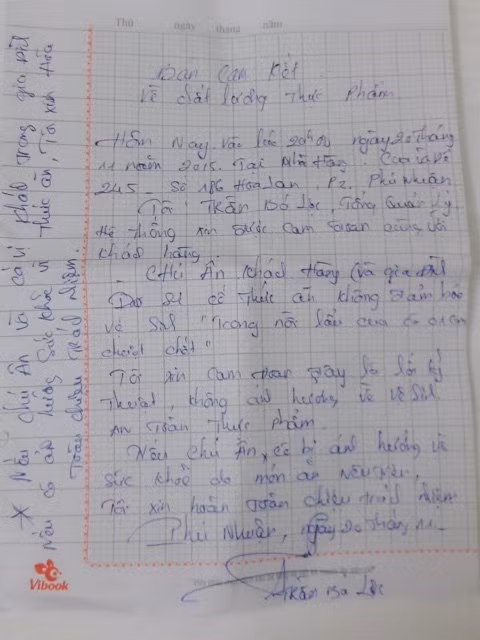 Thứ ngày tháng năm
Bản Cam Kết
Về chất lượng thực phẩm
Hôm nay, vào lúc 20h00 ngày 20 tháng
11 năm 2015. Tại Nhà Hàng
245 - Số 186 Hoa Lan, P2, Phú Nhuận
Tôi: Trần Bá Lộc, Tổng Quản Lý
Hệ thống xin được cam đoan cùng với
khách hàng
- Chú Ân khách hàng (và gia
Do sự cố thức ăn không đảm bảo
về SM "Trong nồi lẩu cua có
chuột chết"
Tôi xin cam đoan đây là lỗi kỹ
thuật, không ảnh hưởng về vệ sinh
an toàn thực phẩm.
Nếu chú Ân, có bị ảnh hưởng về
sức khoẻ do món ăn nêu trên,
Tôi xin hoàn toàn chịu trách nhiệm
Phú Nhuận, ngày 20 tháng 11
Trần Bá Lộc
* Nếu chú Ân và cả vị khách trong gia đình
nếu có ảnh hưởng sức khoẻ vì thức ăn, Tôi xin hứa
toàn chịu trách nhiệm.
Vibook